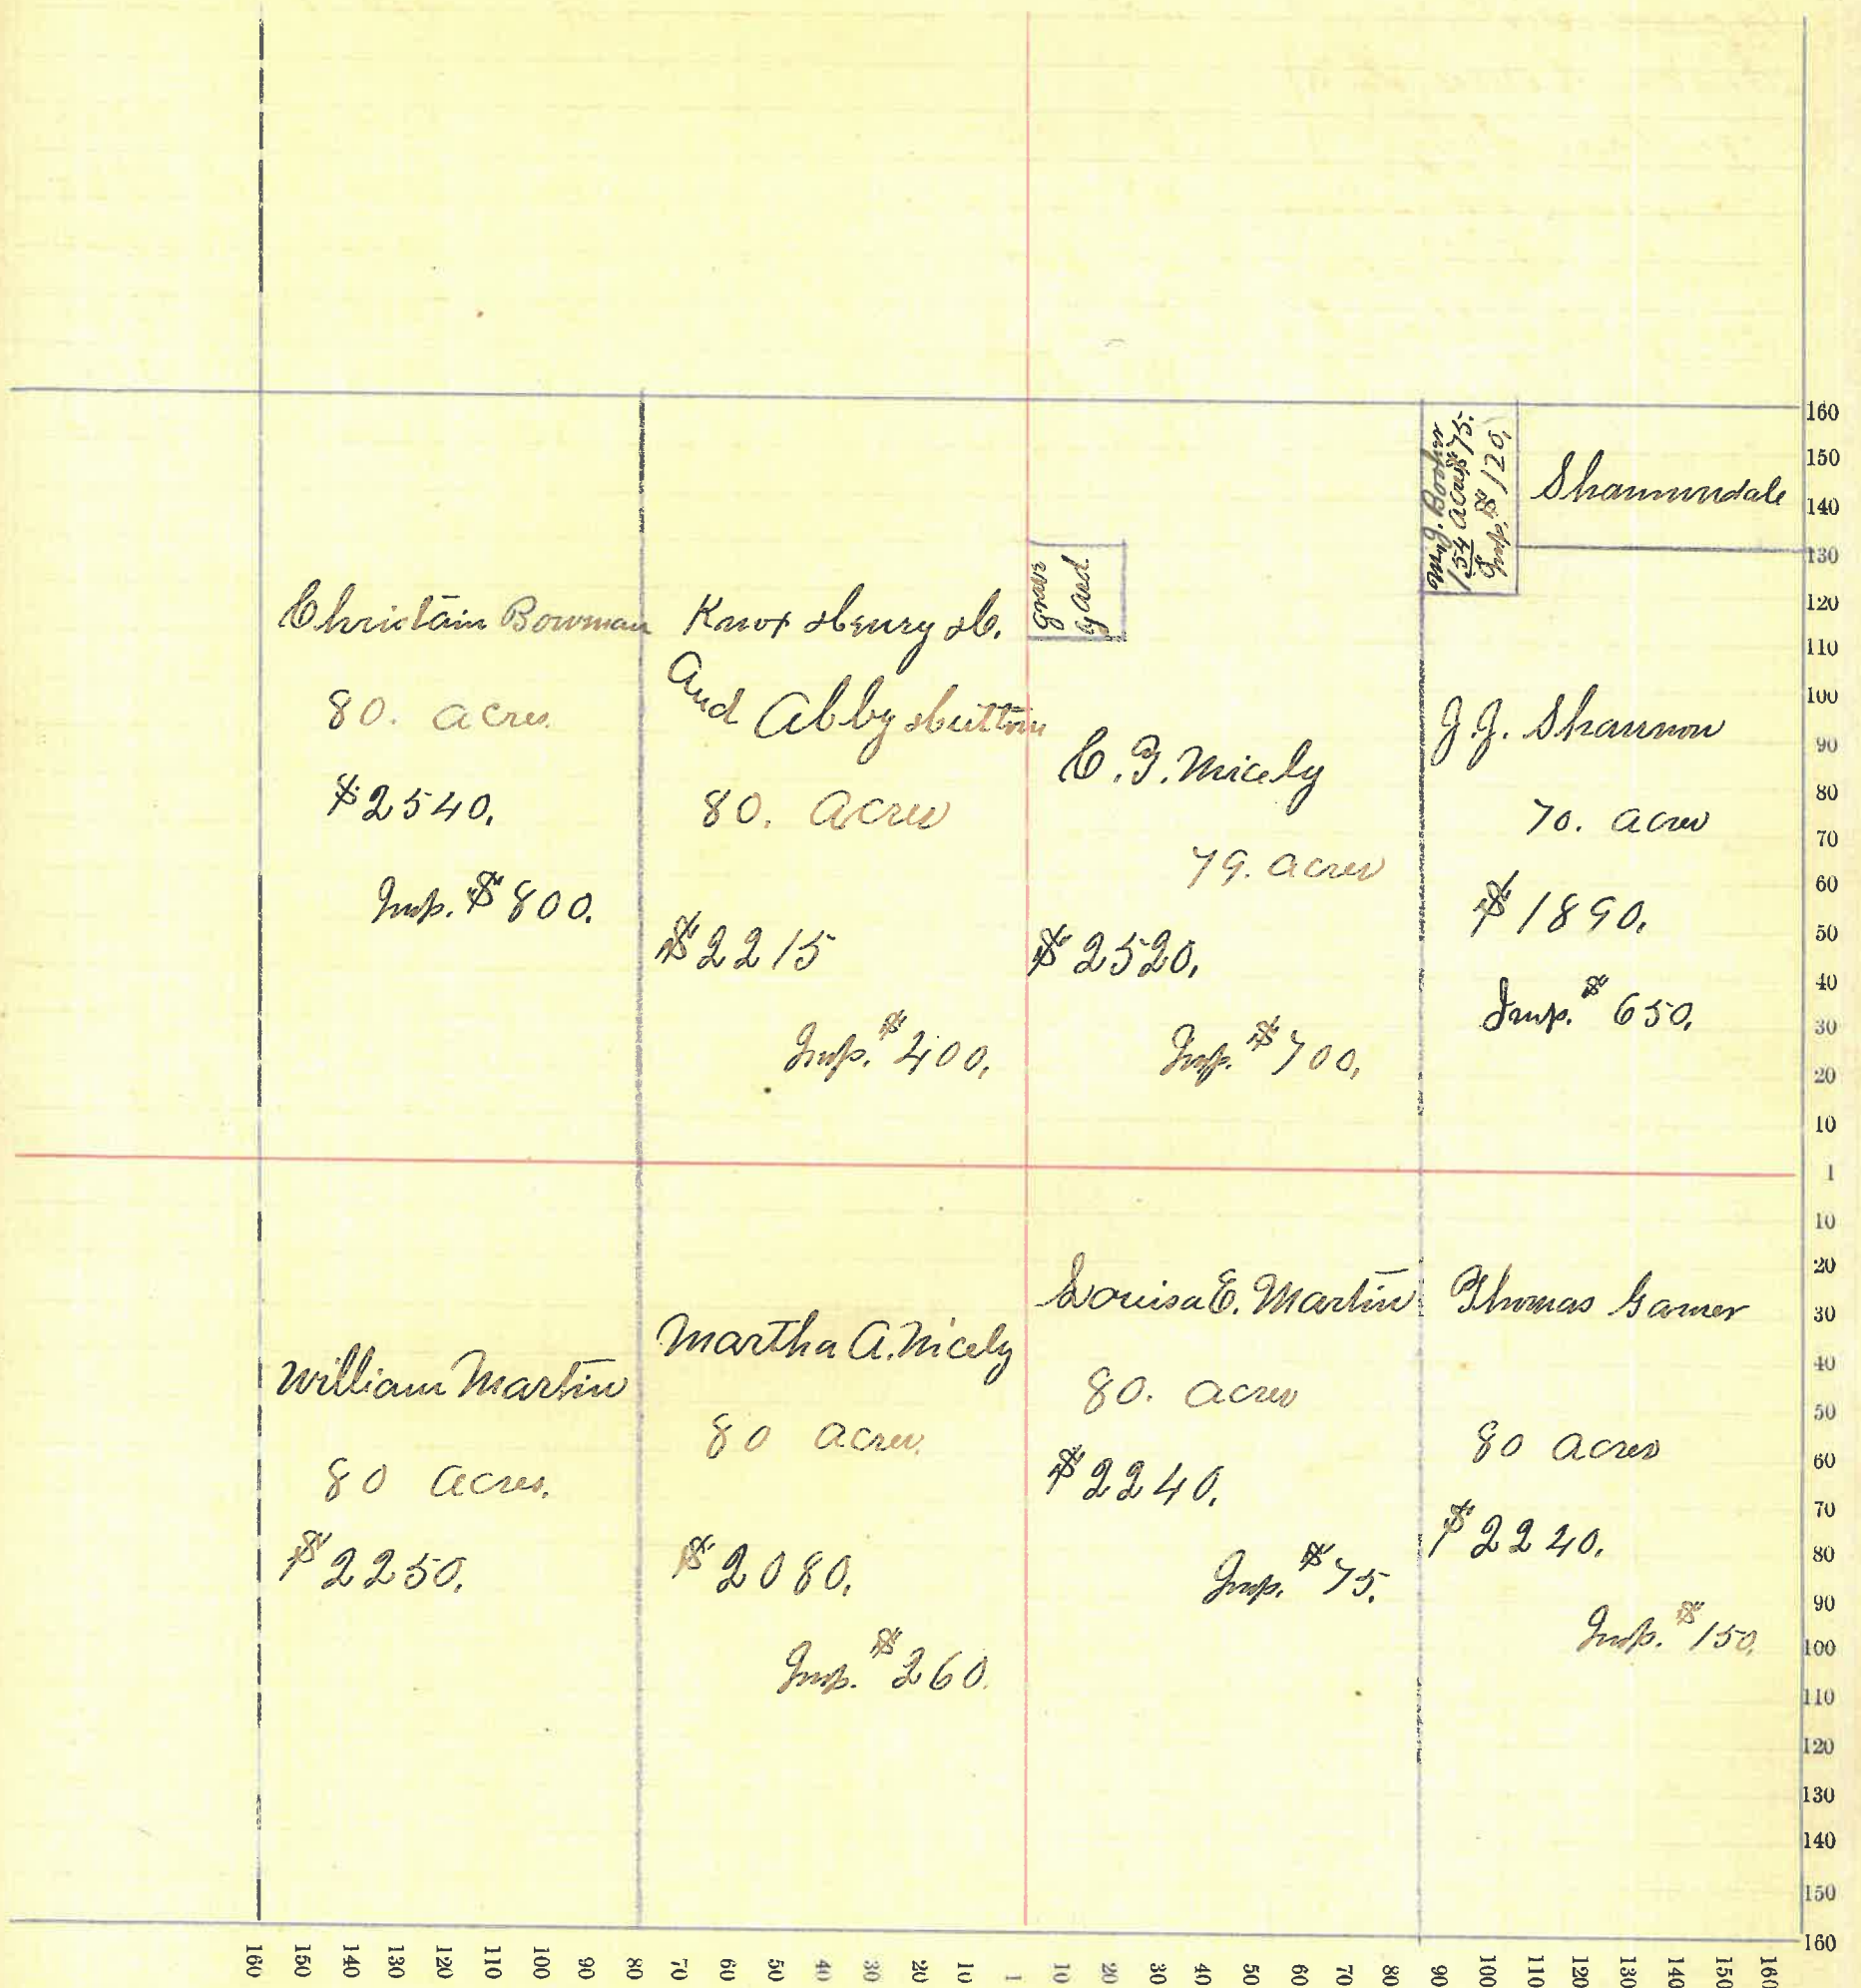 Christain Bowman
80. acres
$2540.
Imp. $800.
Knox Henry H.
And Abby Hutton
80. Acres
$2215
Imp. $400.
grave
yard
C. F. Nicely
79. acres
$2520.
Imp. $700.
acres $75.
Imp. $120.
Shannundale
J. J. Shannon
70. acres
$1890.
Imp. $650.
William Martin
80 acres.
$2250.
Martha A. Nicely
80 acres.
$2080.
Imp. $260.
Louisa E. Martin
80. acres
$2240.
Imp. $75.
Thomas Garner
80 acres
$2240.
Imp. $150.
160
150
140
130
120
110
100
90
80
70
60
50
40
30
20
10
1
10
20
30
40
50
60
70
80
90
100
110
120
130
140
150
160
160 150 140 130 120 110 100 90 80 70 60 50 40 30 20 10 1 10 20 30 40 50 60 70 80 90 100 110 120 130 140 150 160